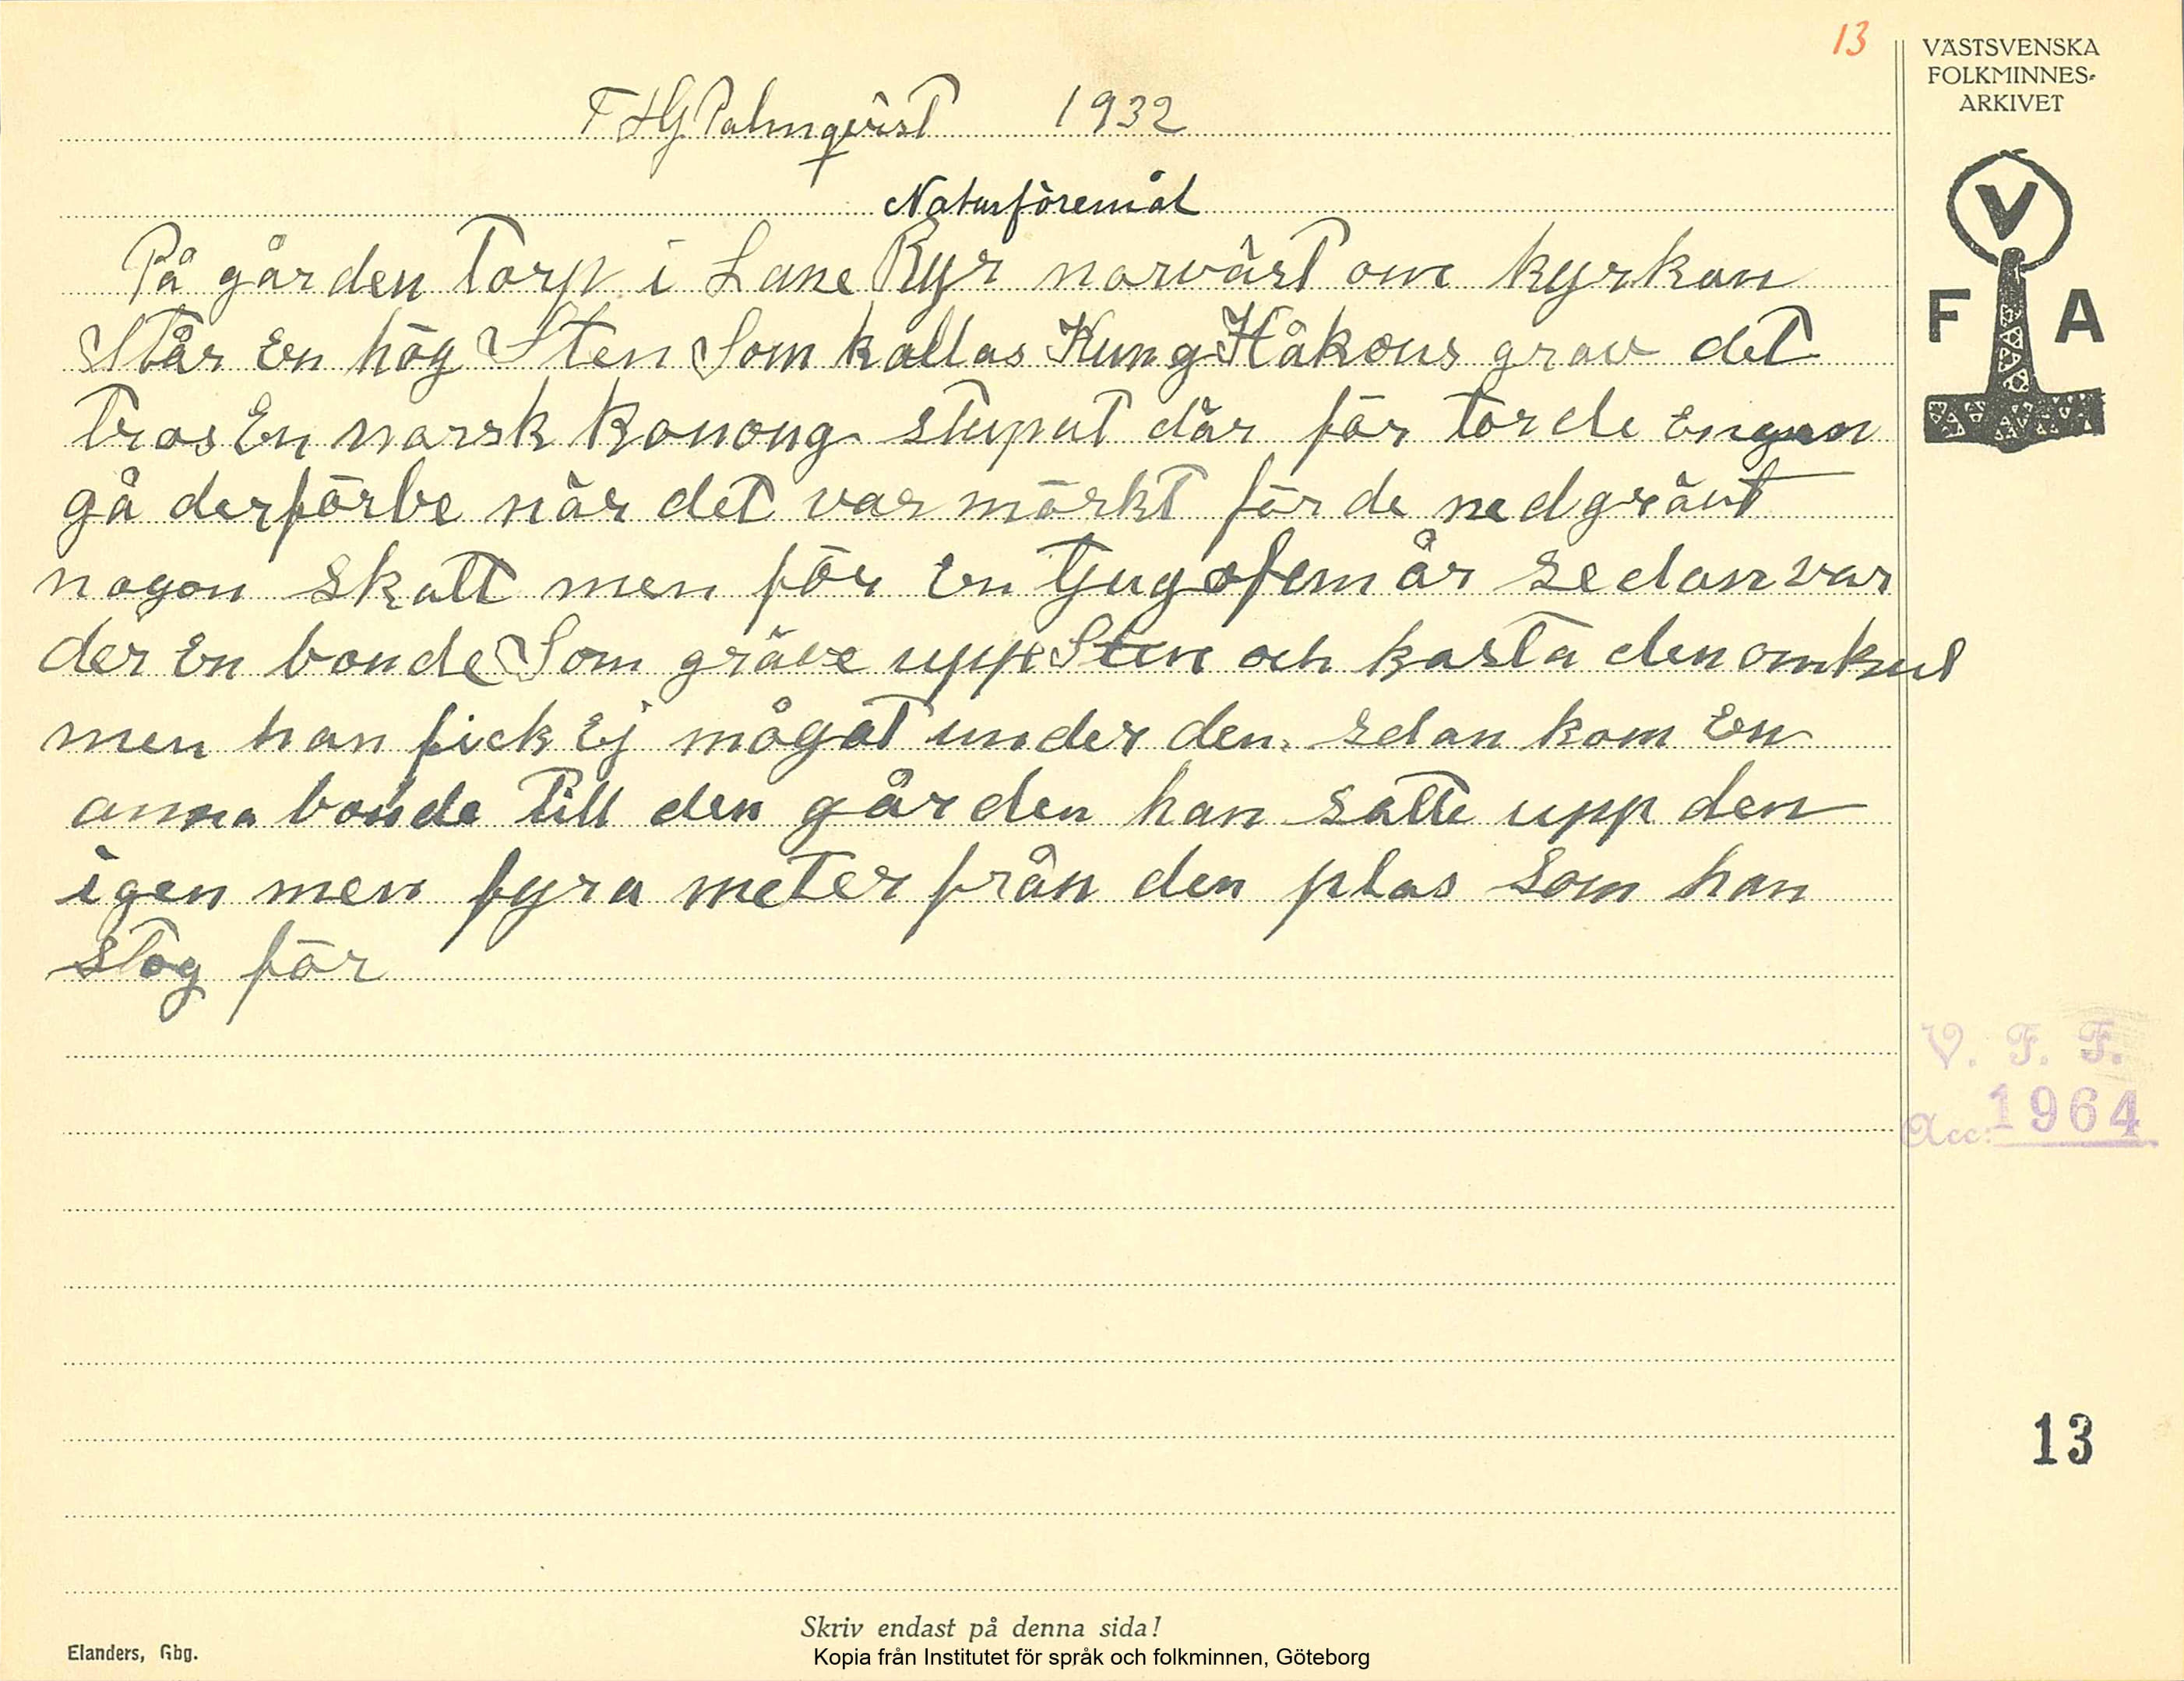 13
VÄSTSVENSKA
FOLKMINNES-
ARKIVET
V
F A
F HG Palmqvist 1932
Naturföremål
På gården Torp i Lane Ryr norväst om kyrkan
Står En hög Sten Som kallas Kung Håkons grav det
tros En norsk konong stuput där för torde Engen
gå derförbe när det var mörkt för de nedgrävt
nogon skatt men för En tjugofem år sedan var
der En bonde Som gräve upp Sten och kasta den omkul
men han fick Ej någåt under den. sedan kom En
anna bonde till den gården han satte upp den
igen men fyra meter från den plas som han
stog för
V. F. F.
Acc. 1964
13
Skriv endast på denna sida!
Elanders, Gbg.
Kopia från Institutet för språk och folkminnen, Göteborg